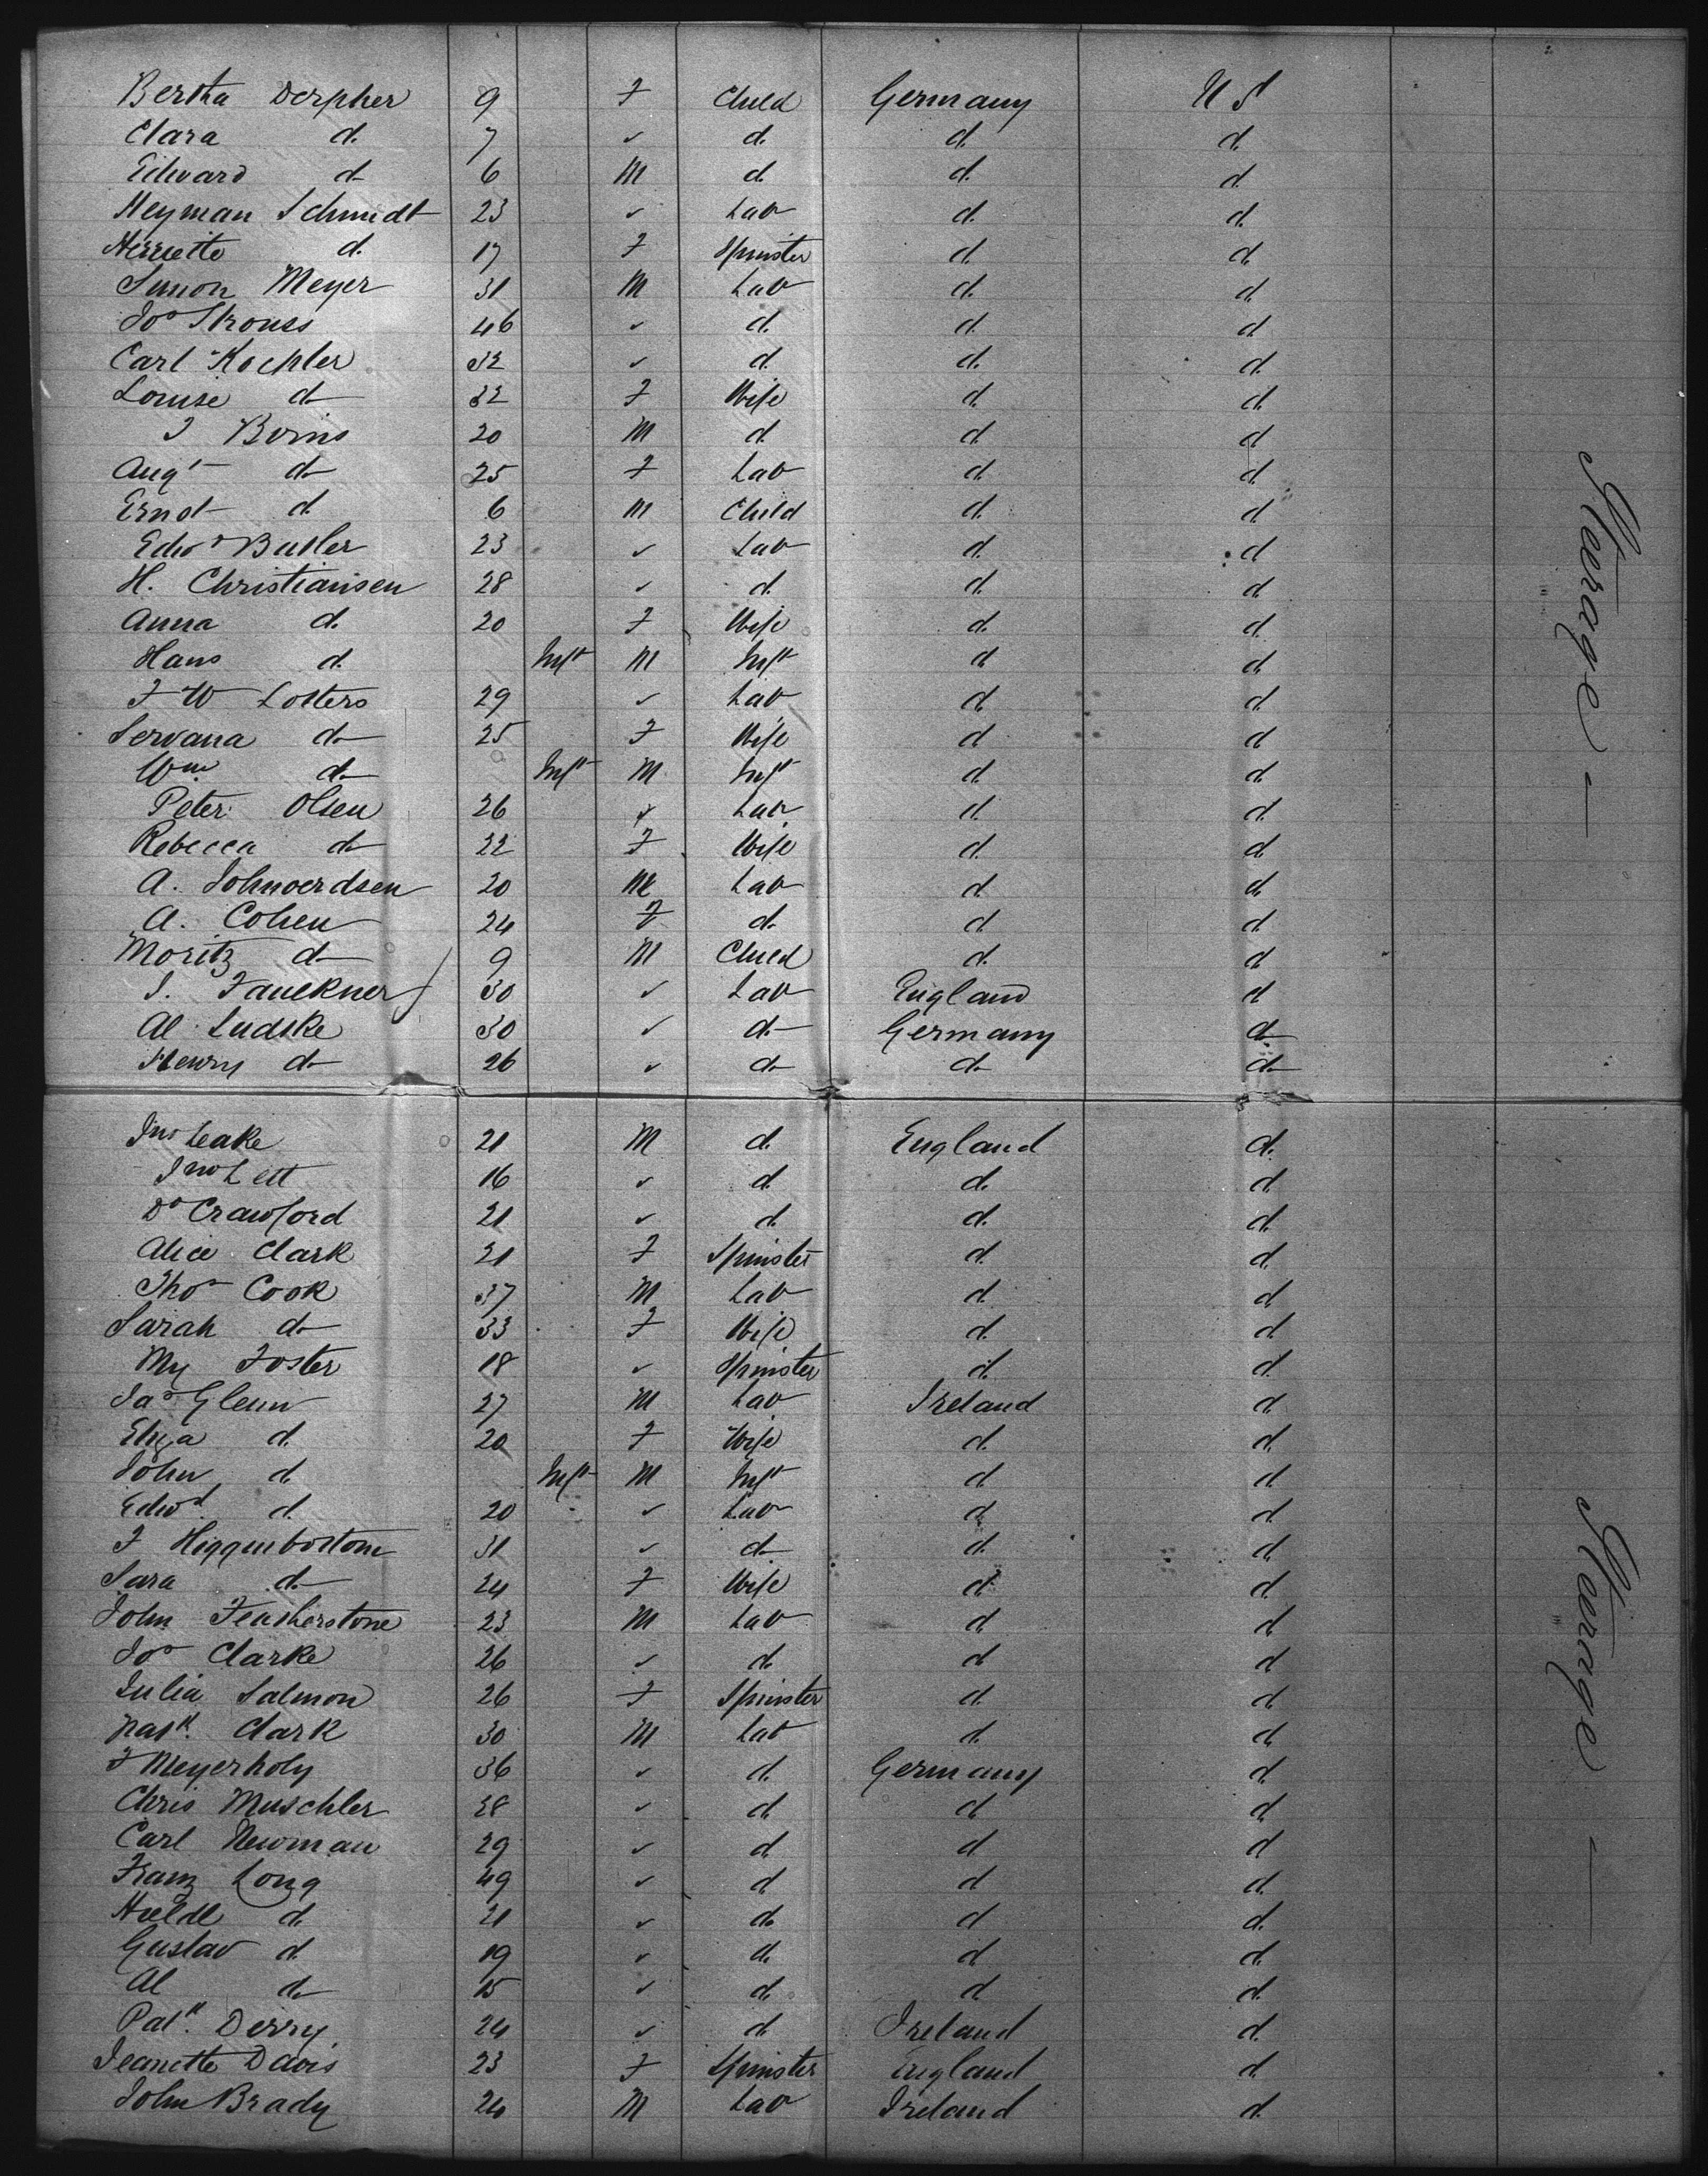 Bertha Derpher 9 F Child Germany U S
Clara d. 7 ✓ d. d. d.
Edward d 6 M d d. d.
Heyman Schmidt 23 ✓ Lab d. d.
Henriette d. 17 F Spinster d. d.
Simon Meyer 31 M Lab d. d.
Jos Strouss 46 ✓ d. d. d
Carl Koehler 32 ✓ d. d. d.
Louise d 32 F Wife d. d.
F Borns 20 M d. d d
Augt d 25 F Lab d. d
Ernst d. 6 M Child d. d
Edwd Butler 23 ✓ Lab d. d
H. Christiansen 28 ✓ d. d. d.
Anna d. 20 F Wife d. d
Hans d. Inft M Inft d d
F W Losters 29 ✓ Lab d d
Servana d 25 F Wife d d
Wm d Inft M Inft d d
Peter Olsen 26 ✓ Lab d. d.
Rebecca d 22 F Wife d. d
A. Johnoerdsen 20 M Lab d. d.
A. Cohen 24 F d. d d
Moritz d 9 M Child d. d
J. Faulkner 30 ✓ Lab England d
Al Ludske 30 ✓ d Germany d
Henry d 26 ✓ d d d
Steerage —
Jno Leake 21 M d. England d.
Jno Lett 16 ✓ d. d. d.
Do Crawford 21 ✓ d d. d.
Alice Clark 21 F Spinster d. d.
Thos Cook 37 M Lab d. d
Sarah d 33 F Wife d. d
My Foster 18 ✓ Spinster d. d.
Jas Glenn 27 M Lab Ireland d.
Eliza d. 20 F Wife d. d.
John d. Inft M Inft d d.
Edwd d. 20 ✓ Lab d d.
F Higginbottom 31 ✓ d d. d.
Sara d. 24 F Wife d d.
John Featherstone 23 M Lab d d
Jos Clarke 26 ✓ d. d d
Julia Salmon 26 F Spinster d. d
Patk. Clark 30 M Lab d. d
F Meyerholy 36 ✓ d. Germany d.
Chris Muschler 28 ✓ d d d
Carl Newman 29 ✓ d d d
Franz Long 49 ✓ d d d.
d. 21 ✓ d. d d.
Gustav d. 19 ✓ d. d d.
Al d 15 ✓ d. d d.
Patk. Derry 24 ✓ d Ireland d.
Jeanette Davis 23 F Spinster England d.
John Brady 24 M Lab Ireland d.
Steerage —